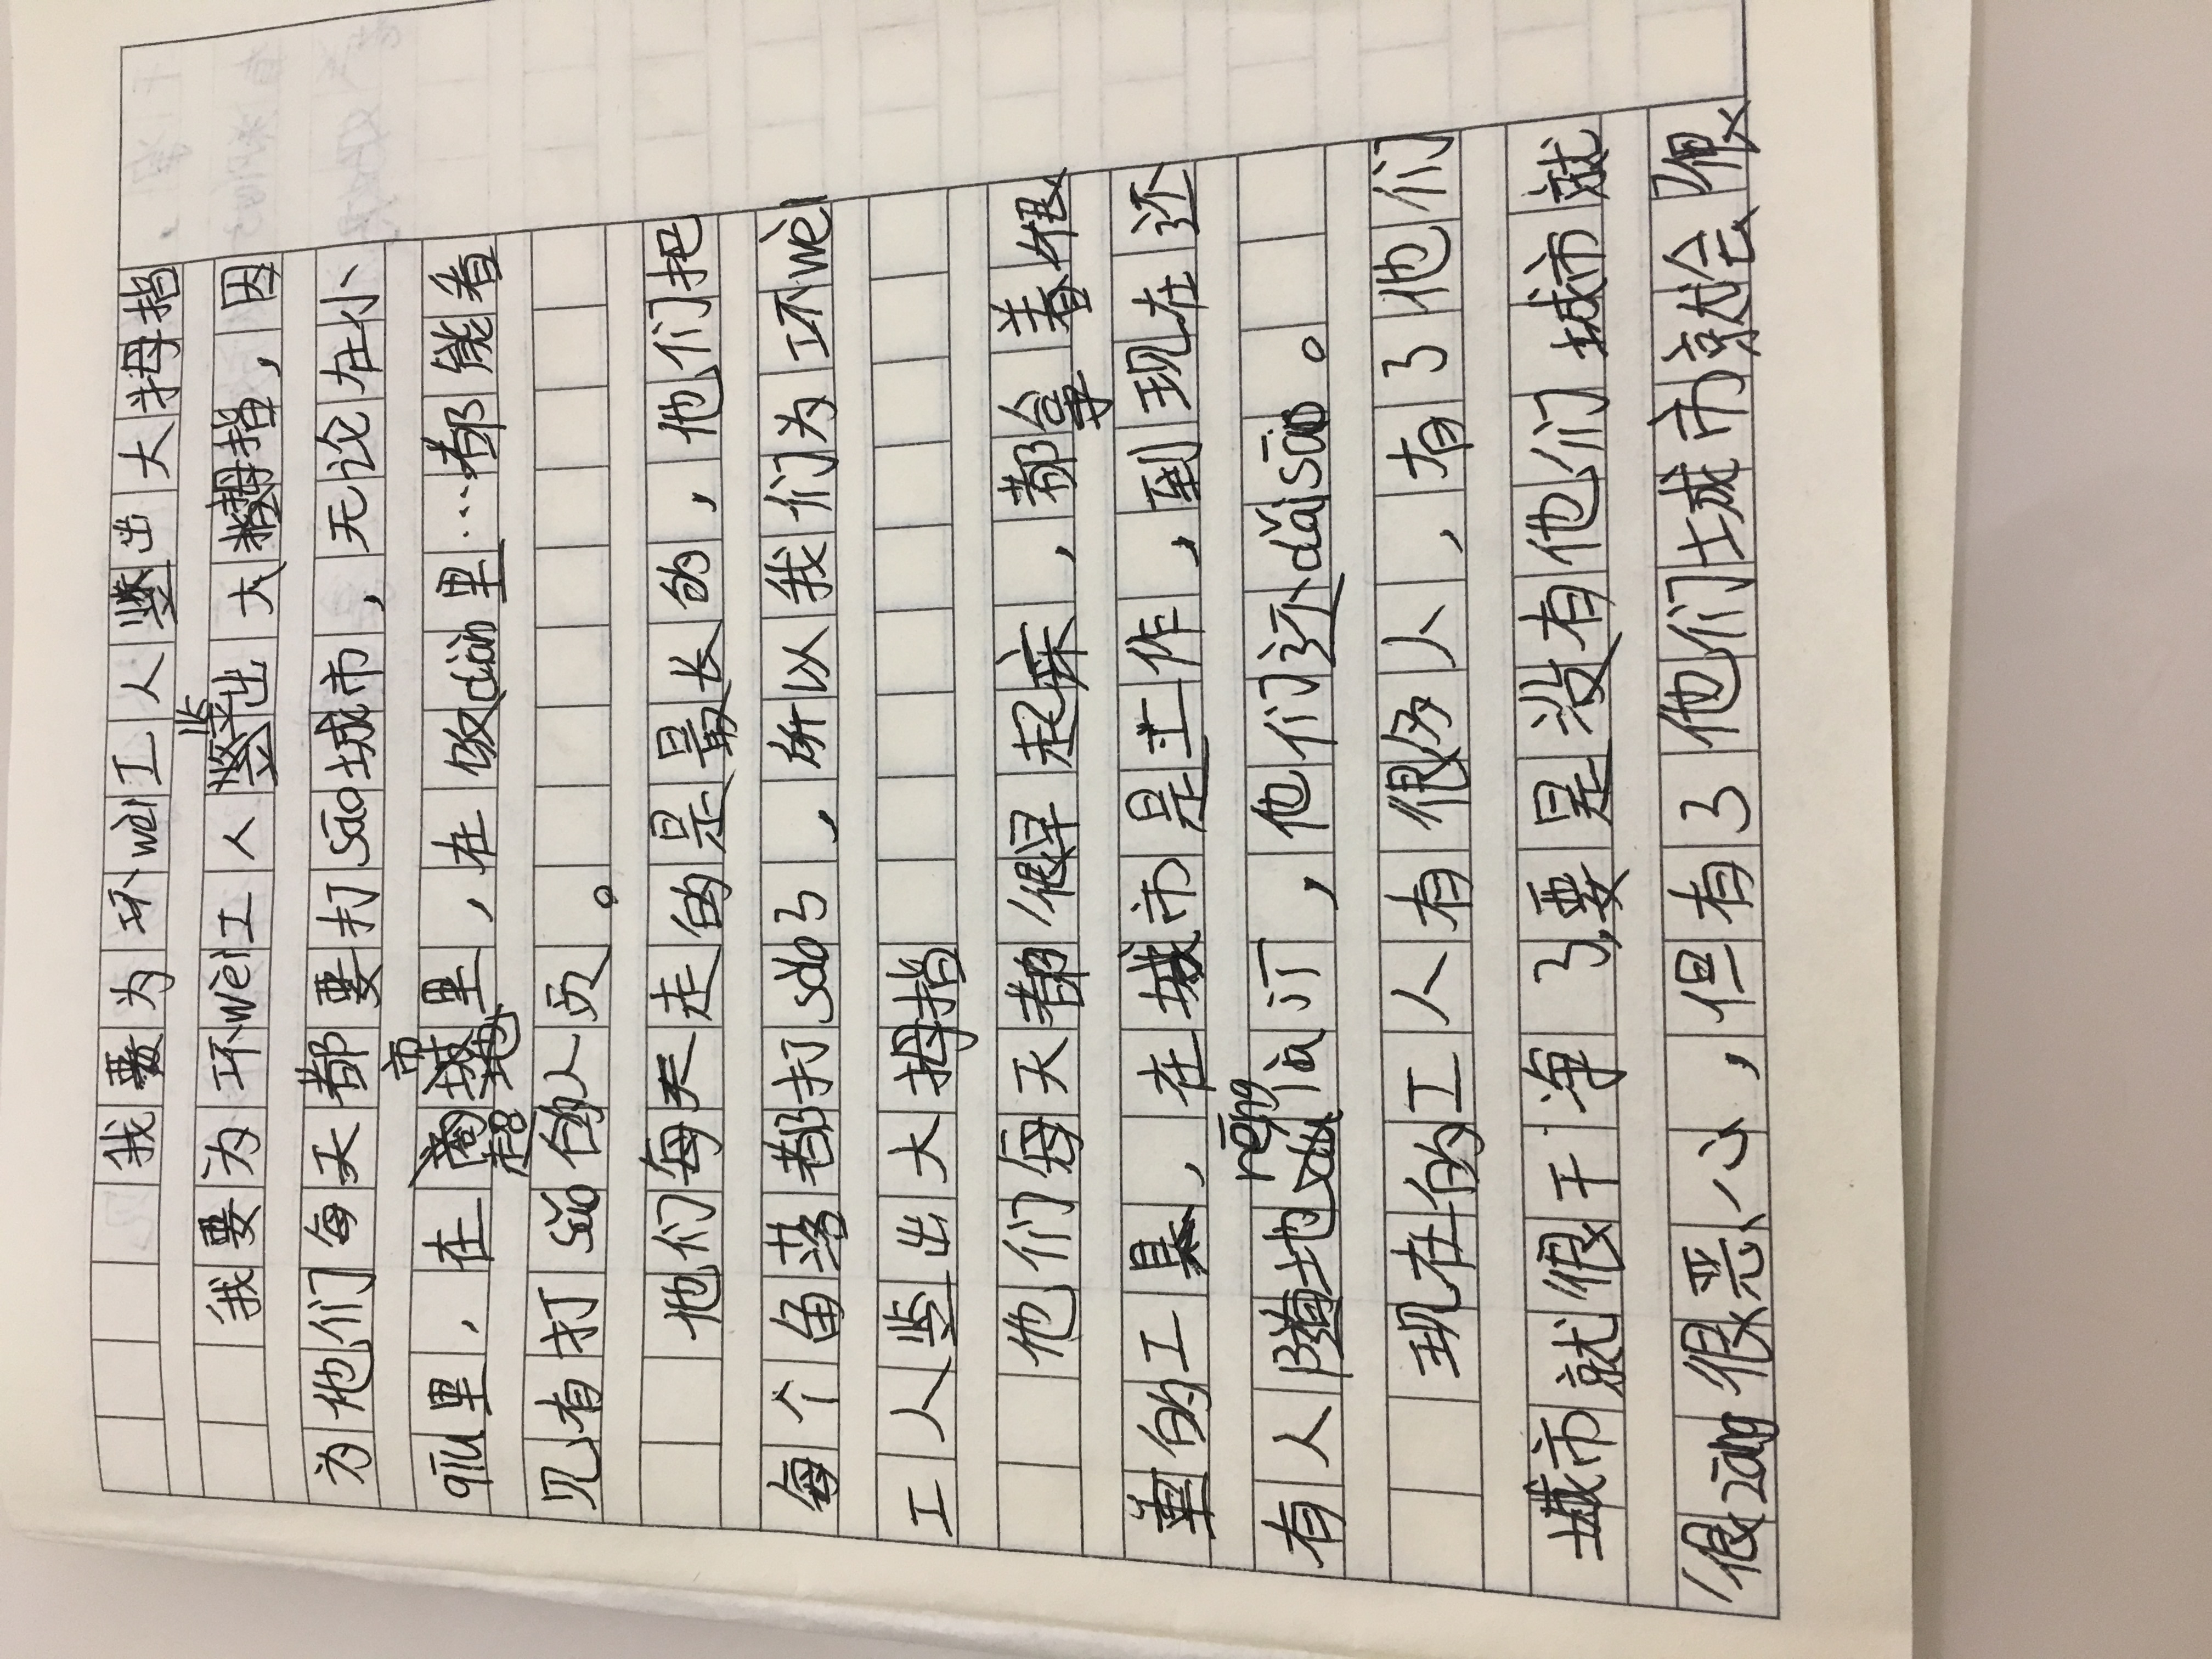 我要为环wèi工人竖出大拇指
我要为环wèi工人竖出大拇指，因
为他们每天都要打sǎo城市，无论在小
qū里，在商城里，在饭diàn里…都能看
见有打sǎo的人员。
他们每天走的是最长的，他们把
每个角落都打sǎo了，所以我们为环wèi
工人竖出大拇指
他们每天都很早起床，都拿着很
重的工具，在城市是工作，到现在还
有人随地rēng lājī，他们还dǎsǎo。
现在的工人有很多人，有了他们
城市就很干净了，要是没有他们城市就
很zāng很恶心，但有了他们城市就会很